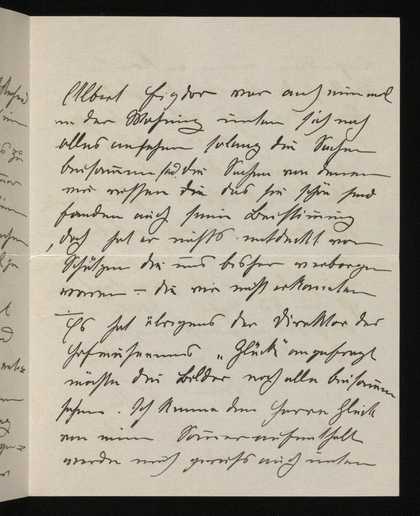 Albert Figdor war auch einmal
in der Wohnung unten sich noch
alles ansehen solang die Sachen
beisammen sind, die Sachen von denen
wir wissen die das sie schön sind
fanden auch seine Bestimmung
doch hat er nichts entdeckt von
Schätzen die uns bisher verborgen
waren – die wir nicht erkannten
Es hat übrigens der Direktor des
Hofmuseums „Glück" angefragt
möchte die Bilder noch alle beisammen
sehen. Ich kenne den Herrn Glück
von einem Sommeraufenthalt
werde mich gewiss auch unten